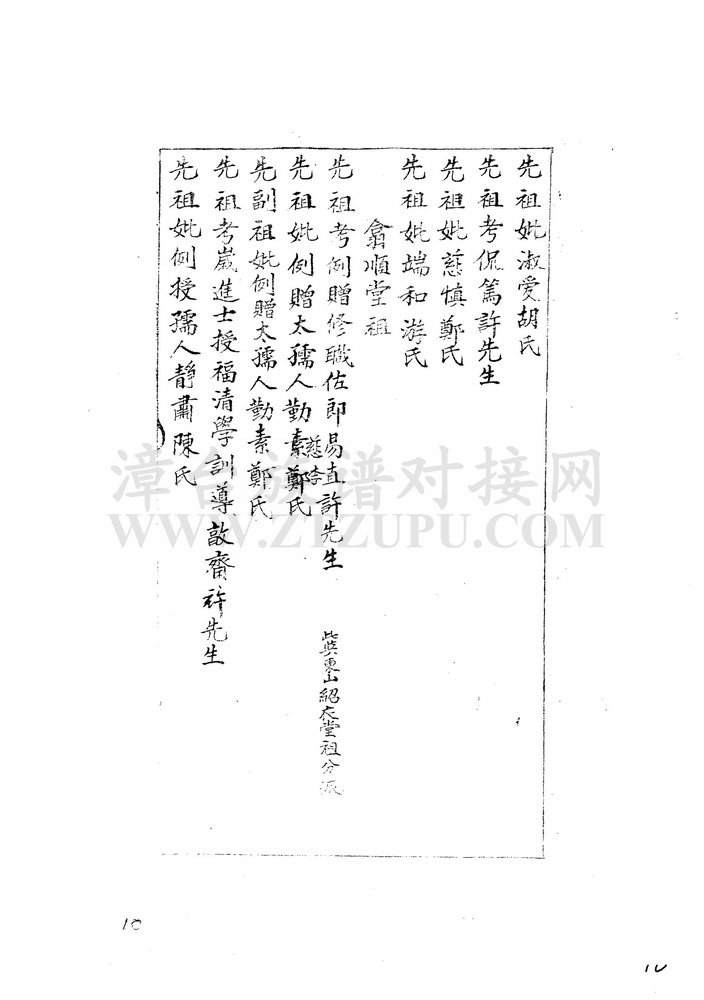 先祖妣淑爱胡氏
先祖考侃篤許先生
先祖妣慈慎鄭氏
先祖妣端和游氏
翕順堂祖
先祖考例贈修職佐郎易直許先生
此與東山紹衣堂祖分派
先祖妣例贈太孺人勤素鄭氏
慈李
先副祖妣例贈太孺人勤素鄭氏
先祖考嵗進士授福清學訓導敨齋許先生
先祖妣例授孺人靜肅陳氏
漳台族谱对接网
WWW.ZTZUPU.COM
10
10